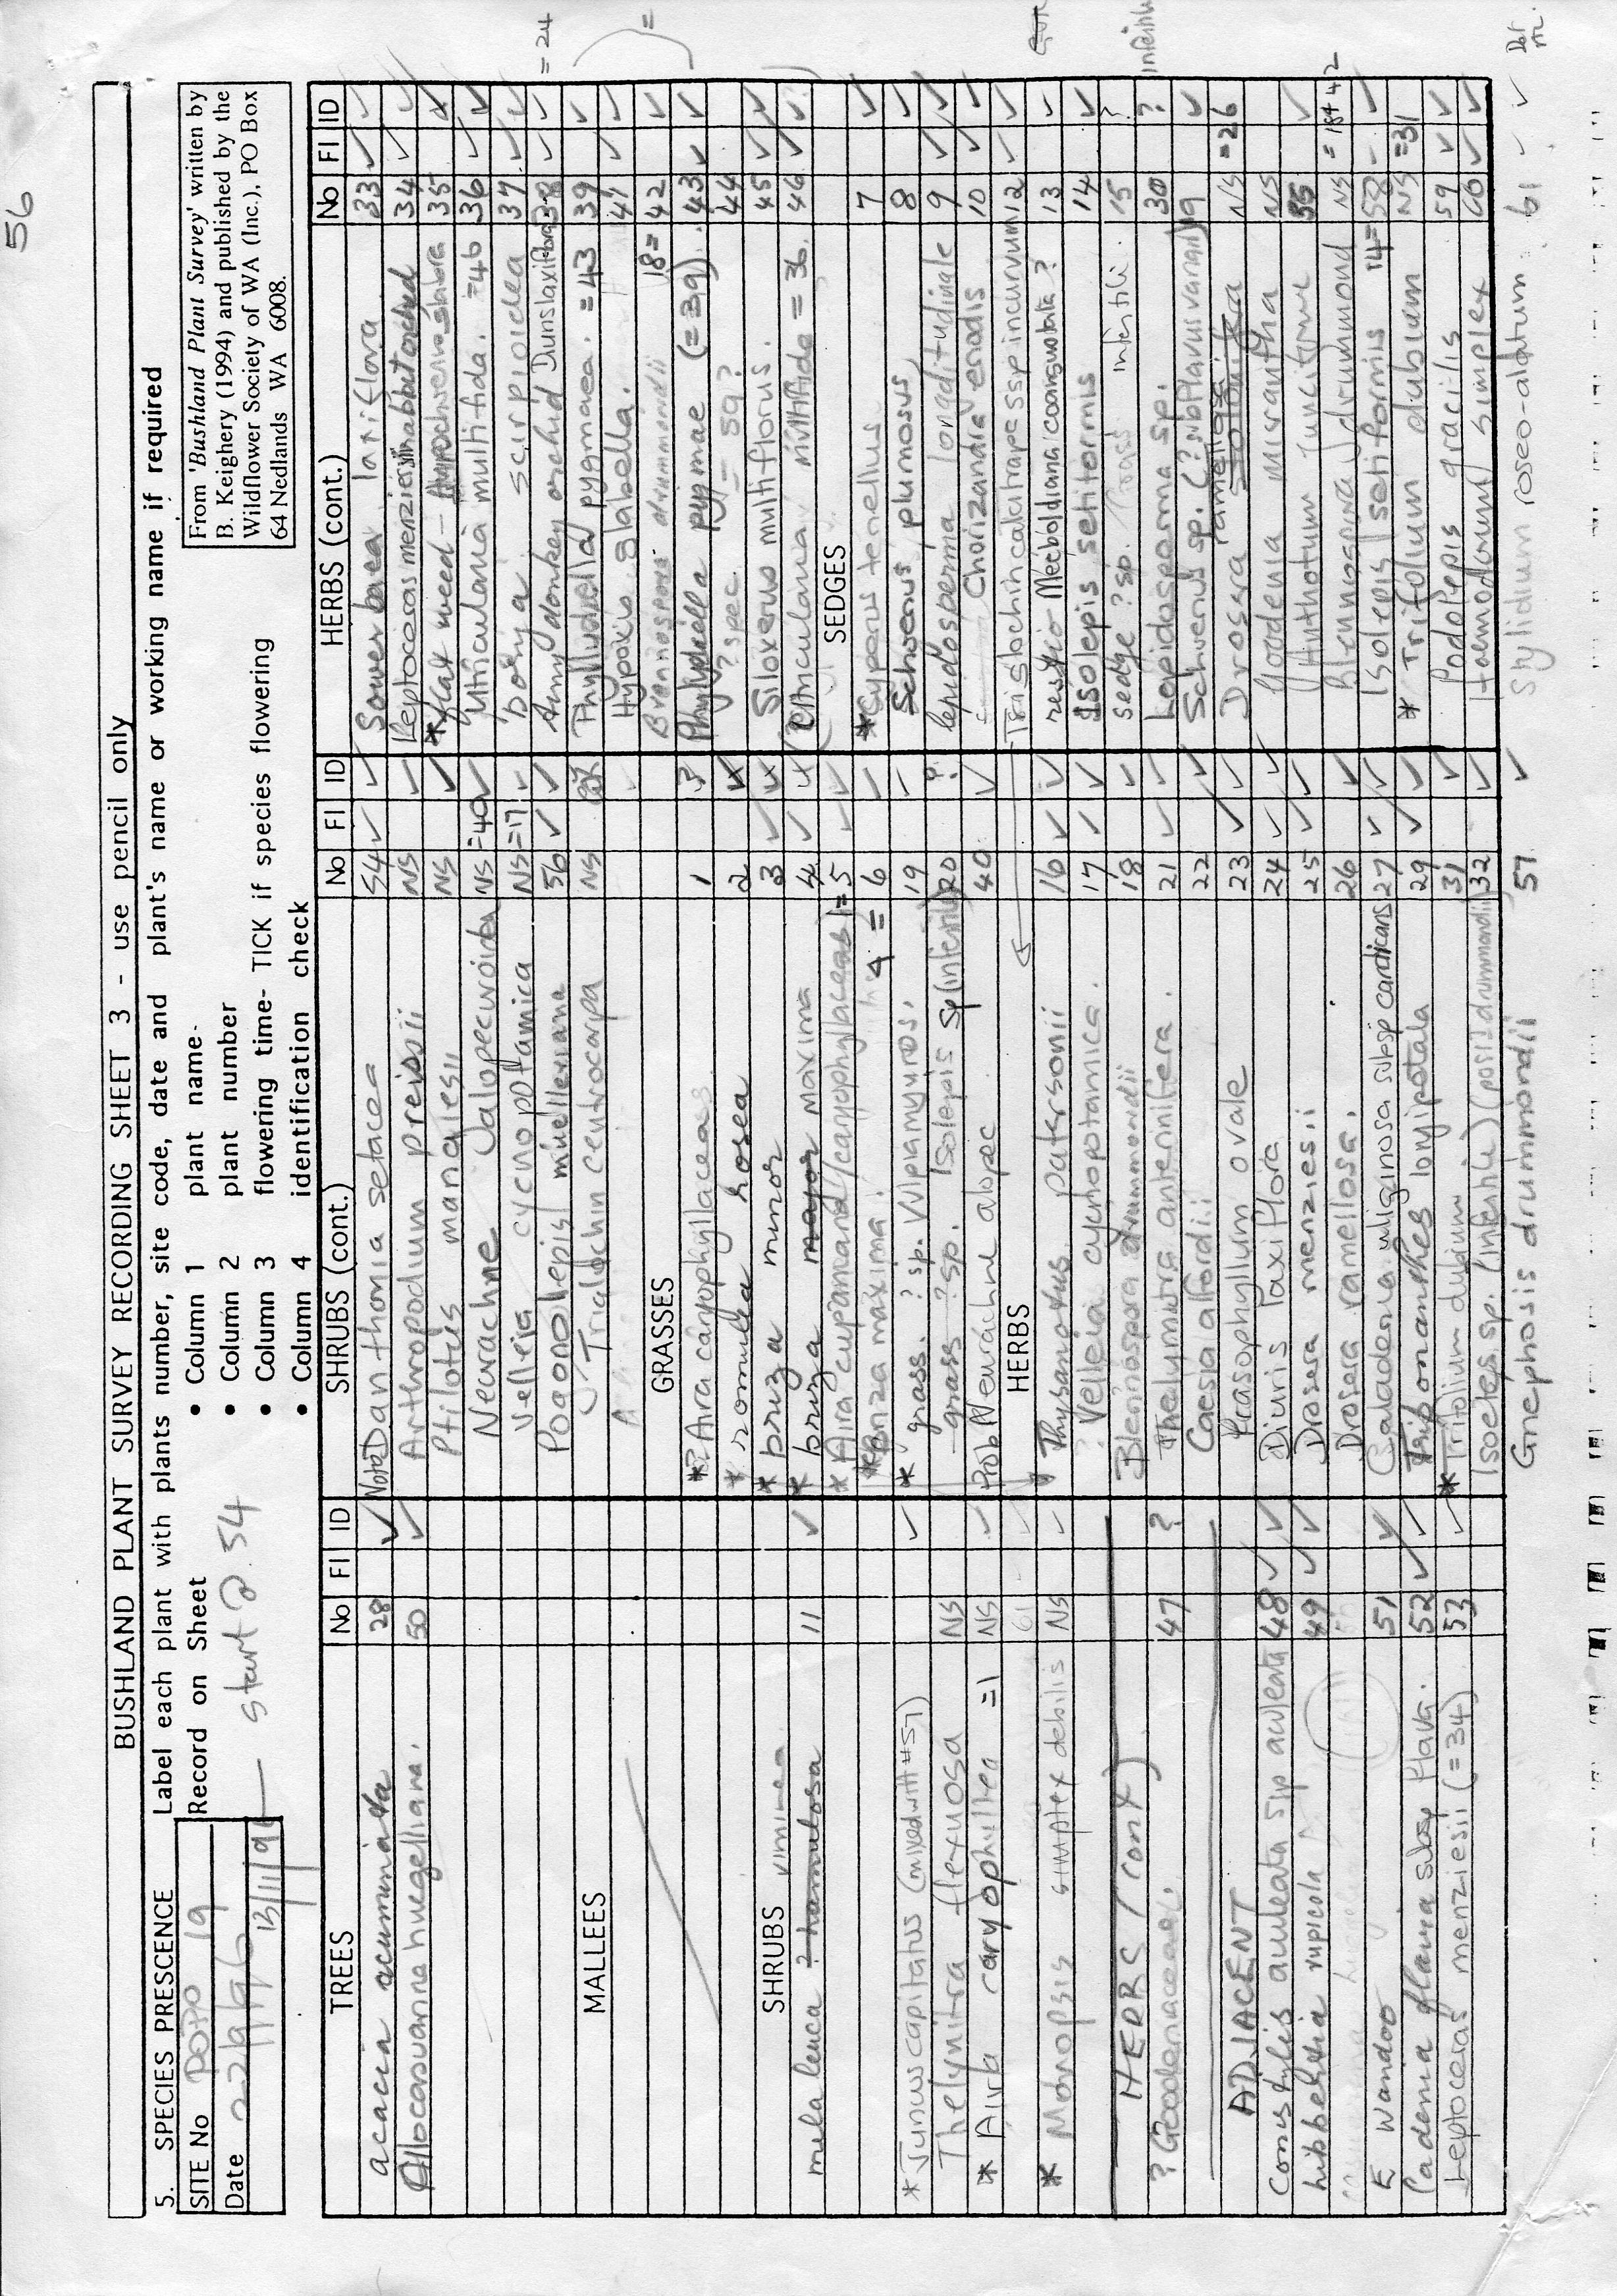 56
BUSHLAND PLANT SURVEY RECORDING SHEET 3 - use pencil only
5. SPECIES PRESCENCE Label each plant with plants number, site code, date and plant's name or working name if required
SITE No 19
Record on Sheet
Date 22/9/96
13/11/96 start @ 54
• Column 1 plant name-
• Column 2 plant number
• Column 3 flowering time- TICK if species flowering
• Column 4 identification check
From 'Bushland Plant Survey' written by
B. Keighery (1994) and published by the
Wildflower Society of WA (Inc.), PO Box
64 Nedlands WA 6008.
TREES No Fl ID
acacia acuminata 28 ✓
Allocasuarina huegeliana. 50 ✓
MALLEES
SHRUBS viminea
melaleuca ? hamulosa 11 ✓
* Juncus capitatus (mixed with #57) ✓
Thelymitra flexuosa NS
* Airia caryophillea =1 NS ✓
61
* Monopsis simplex debilis NS ✓
HERBS (cont)
? Goodenaceae. 47 ?
ADJACENT
Conostylis aculeata ssp aculeata 48 ✓ ✓
hibbertia rupicola 49 ✓ ✓
E wandoo 51 ✓
Cadenia flava subsp flava. 52 ✓ ✓
Leptoceras menziesii (=34) 53 ✓
SHRUBS (cont.) No Fl ID
Danthonia setacea 54 ✓ ✓
Arthropodium preissii NS ✓
Ptilotus manglesii NS ✓
Neurachne alopecuroidea NS =40 ✓
Velleia cycnopotamica NS =17 ✓
Pogonolepis muelleriana 56 ✓ ✓
Triglochin centrocarpa NS
GRASSES
*? Aira caryophyllaceae 1
* romulea rosea 2
* briza minor 3 ✓
* briza major maxima 4 ✓
* Aira cupianiana/(caryophyllaceae) =5 ✓ ✓
* Briza maxima. 4 = 6 ✓
* grass. ? sp. Vulpia myuros. 19
grass ? sp. Isolepis sp (infertile) 20 ?
Prob Neurachne alopec 40 ✓
HERBS
Thysanotus patersonii 16 ✓ ✓
Velleia cycnopotamica. 17 ✓ ✓
Blennospora drummondii 18 ✓
Thelymitra antennifera. 21 ✓ ✓
Caesia alfordii 22 ✓
Prasophyllum ovale 23 ✓ ✓
Diuris laxiflora 24 ✓ ✓
Drosera menziesii 25 ✓ ✓
Drosera ramellosa. 26 ✓
Caladenia uliginosa subsp candicans 27 ✓ ✓
Tripomanthes longipetala 29 ✓ ✓
* Trifolium dubium 31 ✓
Isoetes sp. (infertile) (poss drummondii) 32 ✓
Gnephosis drummondii 57 ✓
HERBS (cont.) No Fl ID
Sowerbaea laxiflora 33 ✓ ✓
Leptoceras menziesii 34 ✓ ✓
* flat weed - Hypochoeris glabra 35
Utricularia multifida. =46 36 ✓
Borya scirpioidea 37 ✓ ✓
Amy donkey orchid Diuris laxiflora 38 ✓ ✓ = 24
Phylludiella pygmaea. =43 39 ✓
Hypoxis glabella. 41 ✓ ✓
Brennospora drummondii 18= 42 ✓
Phylydrella pygmae (=39). 43 ✓ ✓
? spec. = 59? 44
Siloxerus multiflorus. 45 ✓ ✓
Utricularia multifida = 36. 46 ✓ ✓
SEDGES
* Cyperus tenellus 7 ✓
Schoenus plumosus 8 ✓
lepidosperma longitudinale 9 ✓ ✓
Chorizandra enodis 10 ✓ ✓
Trislochin calcitrape ssp incurvum 12 ✓
restio - Meeboldiana coangustata ? 13 ✓
Isolepis setiformis 14 ✓
sedge ? sp. infertile. 15 ?
Lepidosperma sp. 30 ?
Schoenus sp. (? subflavus variant) 19 ✓
Drosera ramellosa stolonifera NS =26
Goodenia micrantha NS
Anthotium junciforme 55 ✓
Blennospora drummond NS = 18+42
Isolepis setiformis 14= 58 ✓
* Trifolium dubium NS =31
Podolepis gracilis 59 ✓ ✓
Haemodorum simplex 60 ✓ ✓
Stylidium roseo-alatum. 61 ✓ ✓